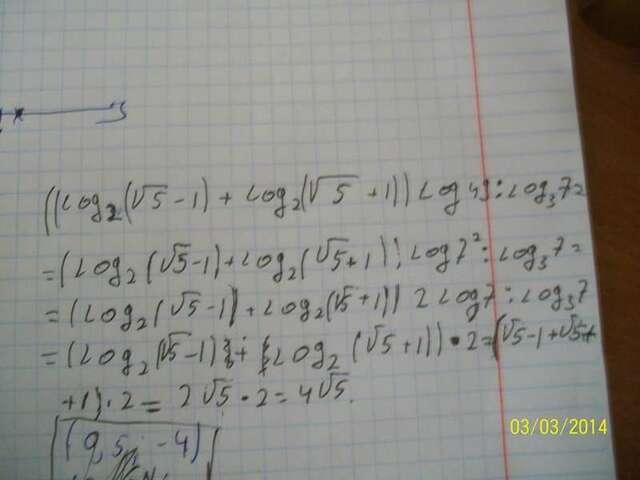 ((Log₂(√5-1) + Log₂(√5 +1)) Log 49 : Log₃7=
=(Log₂(√5-1)+Log₂(√5+1)) Log7² : Log₃7=
=(Log₂(√5-1)+Log₂(√5+1)) 2Log7 : Log₃7
=(Log₂(√5-1)+(Log₂(√5+1))•2=(√5-1+√5+
+1)•2 = 2√5•2= 4√5.
(9,5; -4)
03/03/2014